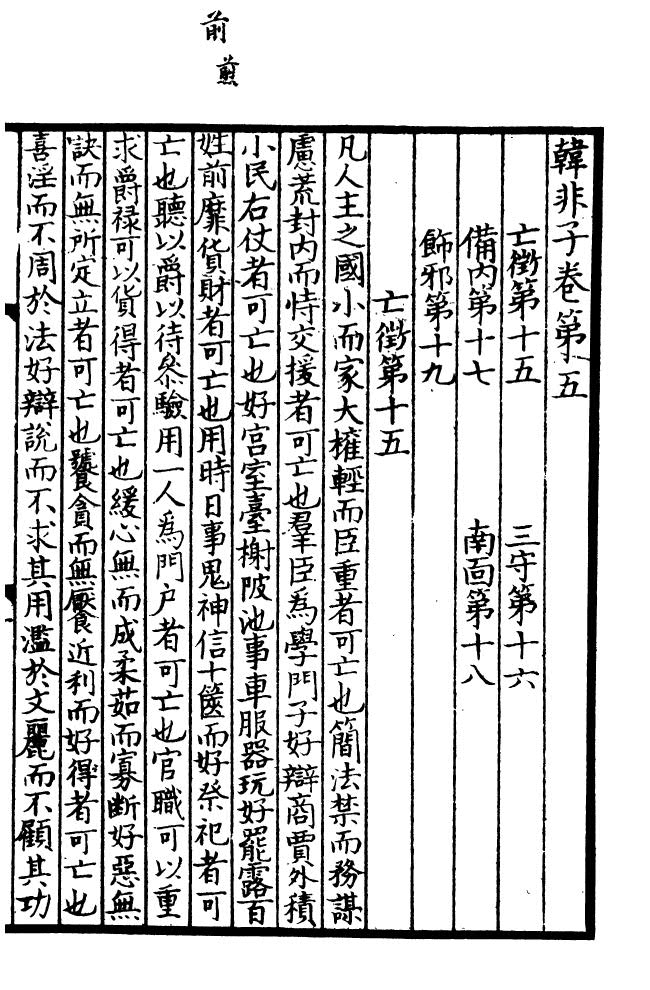 前
煎
韓非子卷第五
亡徵第十五　三守第十六
備內第十七　南面第十八
飾邪第十九
亡徵第十五
凡人主之國小而家大權輕而臣重者可亡也簡法禁而務謀
慮荒封內而恃交援者可亡也羣臣爲學門子好辯商賈外積
小民右仗者可亡也好宮室臺榭陂池事車服器玩好罷露百
姓前靡貨財者可亡也用時日事鬼神信卜筮而好祭祀者可
亡也聽以爵以待參驗用一人爲門戶者可亡也官職可以重
求爵祿可以貨得者可亡也緩心無而成柔茹而寡斷好惡無
訣而無所定立者可亡也饕貪而無饜近利而好得者可亡也
喜淫而不周於法好辯說而不求其用濫於文麗而不顧其功